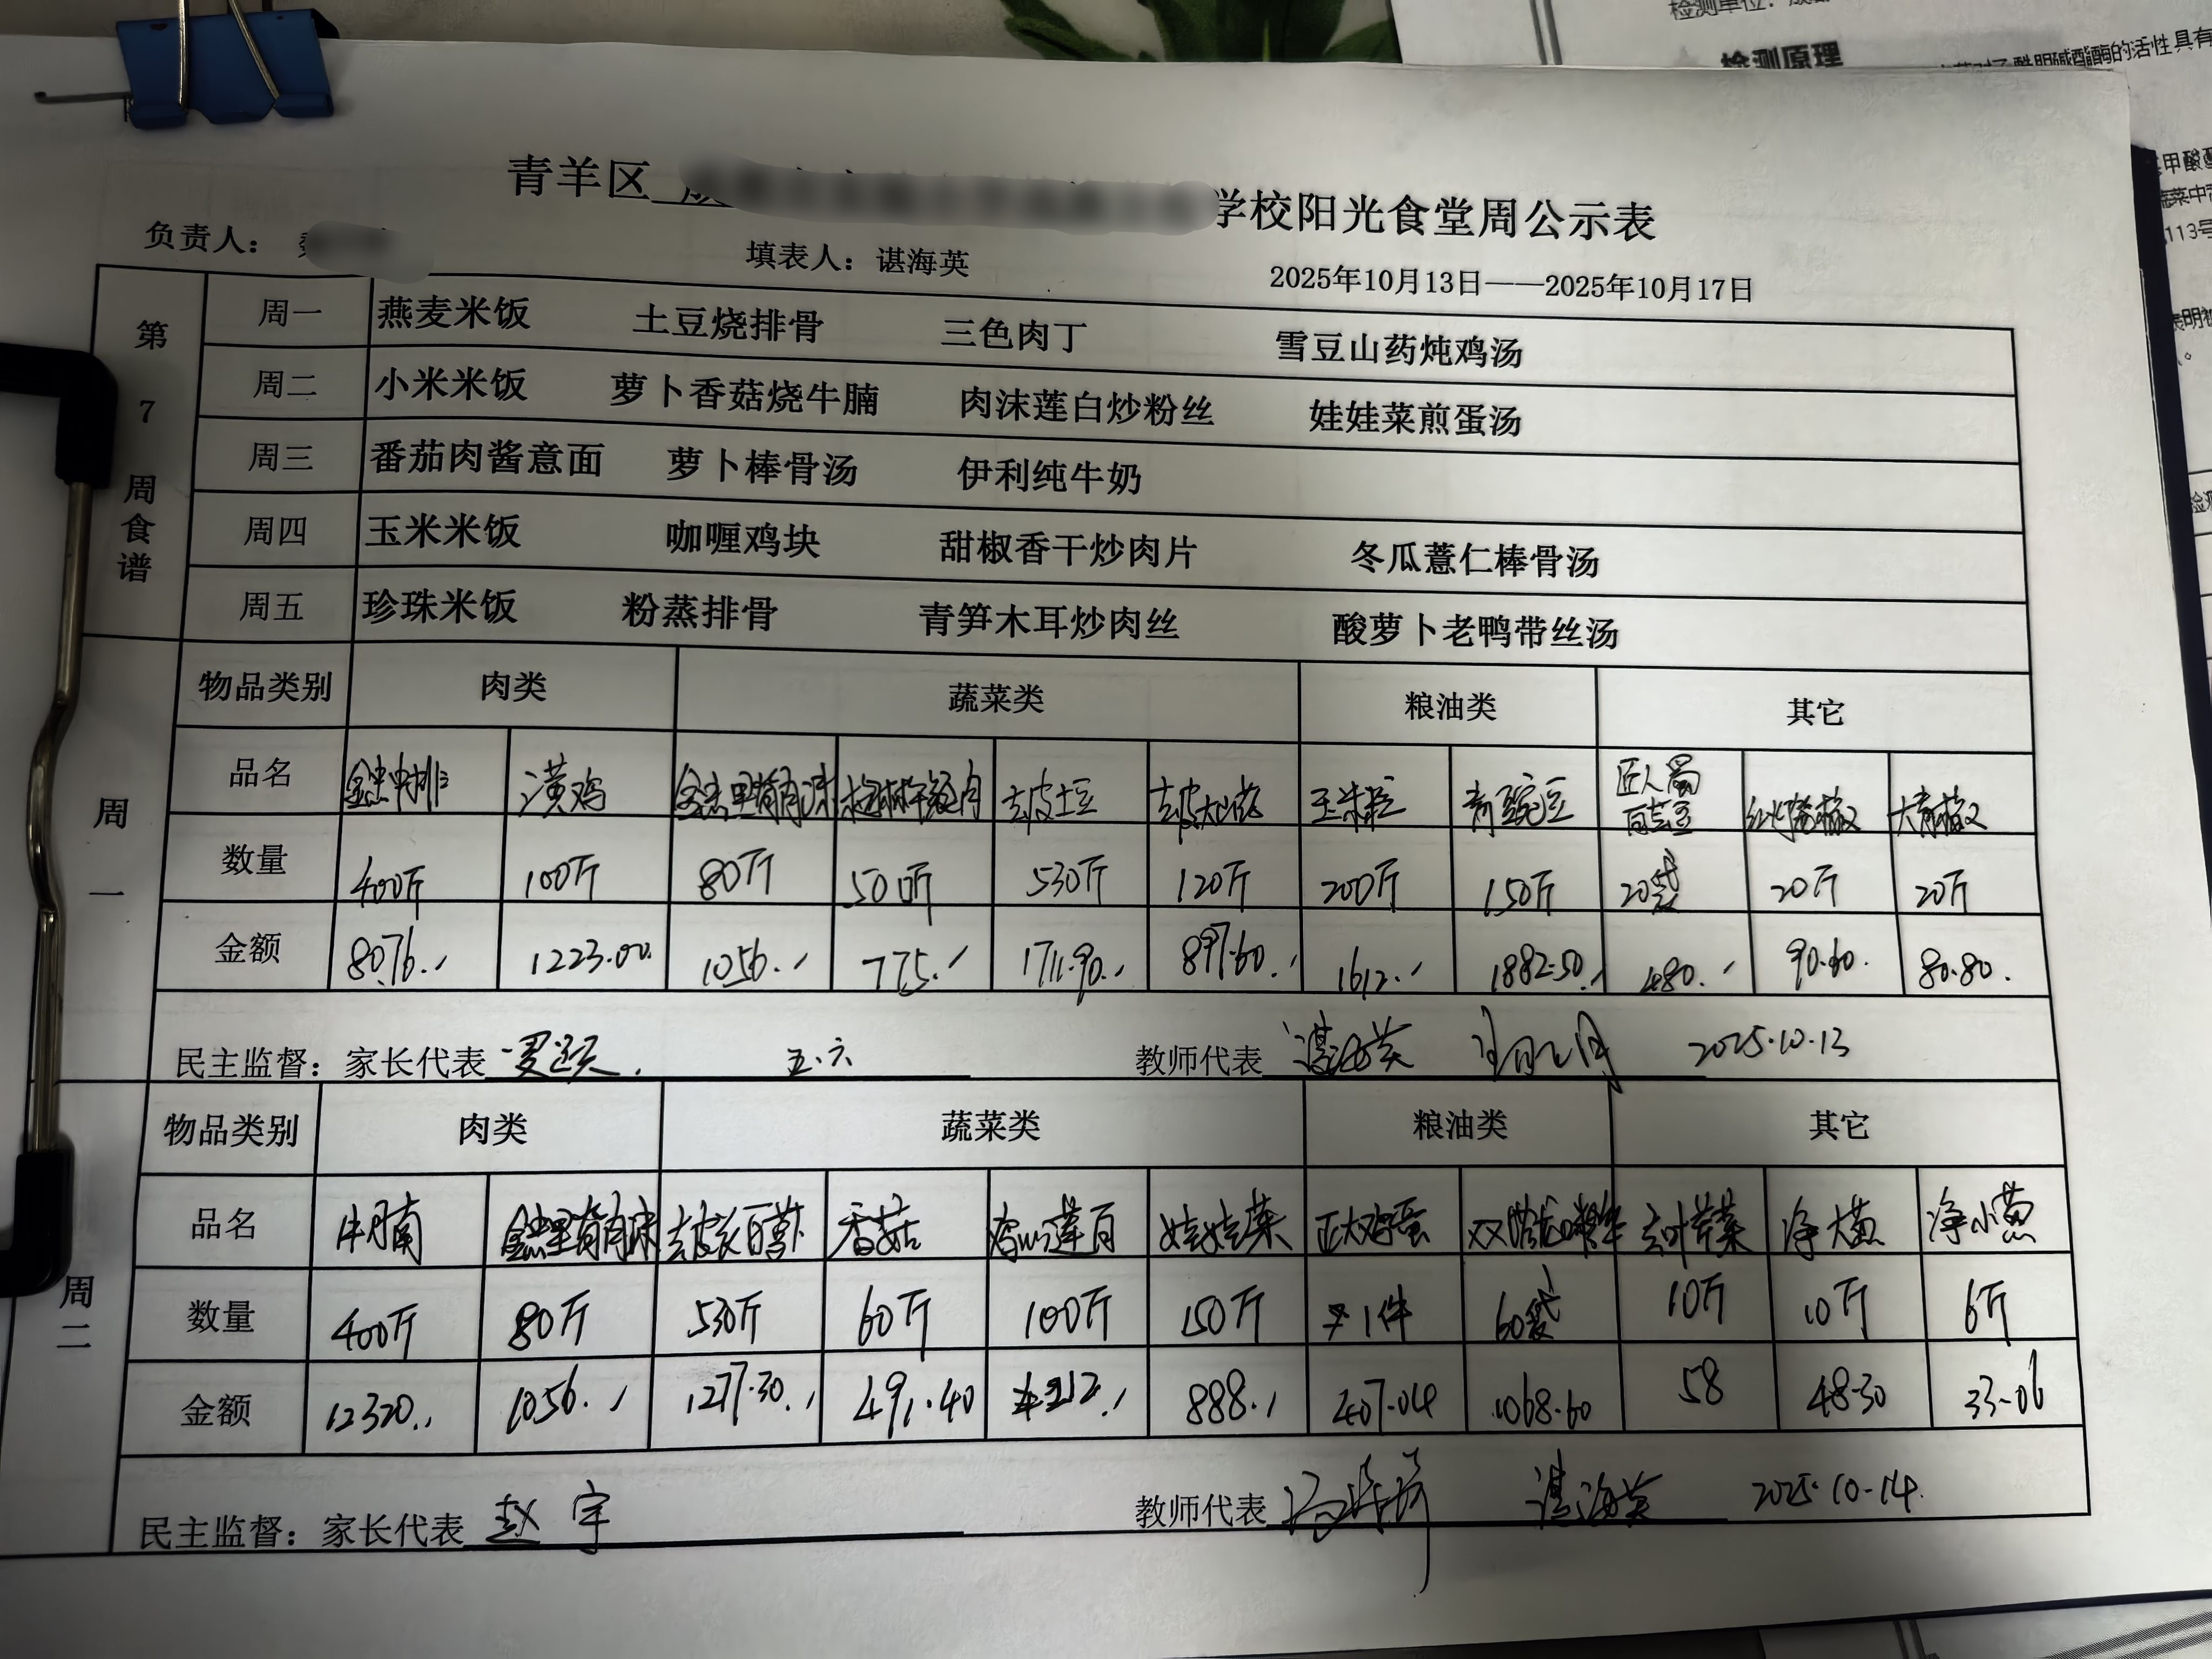 检测单位：成都
检测原理
酰胆碱酯酶的活性具有
甲酸
蔬菜中
113号
表明被
青羊区 学校阳光食堂周公示表
负责人： 填表人：谌海英 2025年10月13日——2025年10月17日
第7周食谱
周一 燕麦米饭 土豆烧排骨 三色肉丁 雪豆山药炖鸡汤
周二 小米米饭 萝卜香菇烧牛腩 肉沫莲白炒粉丝 娃娃菜煎蛋汤
周三 番茄肉酱意面 萝卜棒骨汤 伊利纯牛奶
周四 玉米米饭 咖喱鸡块 甜椒香干炒肉片 冬瓜薏仁棒骨汤
周五 珍珠米饭 粉蒸排骨 青笋木耳炒肉丝 酸萝卜老鸭带丝汤
周一
物品类别 肉类 蔬菜类 粮油类 其它
品名 金忠中排 潢鸡 金忠里脊肉沫 去皮土豆 去皮 玉米粒 青豌豆 匠人蜀百芸豆 红灯笼椒 大青椒
数量 400斤 100斤 80斤 50斤 530斤 120斤 200斤 150斤 20袋 20斤 20斤
金额 8076. 1223.00 1056. 775. 1711.90. 897.60. 1612. 1882.50. 480. 90.60. 80.80.
民主监督：家长代表 五.六 教师代表 谌海英 2025.10.13
物品类别 肉类 蔬菜类 粮油类 其它
周二
品名 牛腩 金忠里脊肉沫 去皮长白萝卜 香菇 莲白 娃娃菜 正大鸡蛋 双 龙口粉丝 去叶芹菜 净大葱 净小葱
数量 400斤 80斤 530斤 60斤 100斤 150斤 1件 60袋 10斤 10斤 6斤
金额 12320. 1056. 1277.30. 491.40 212. 888. 407.04 1068.60 58 48.30 33.06
民主监督：家长代表 赵宇 教师代表 谌海英 2025.10.14.